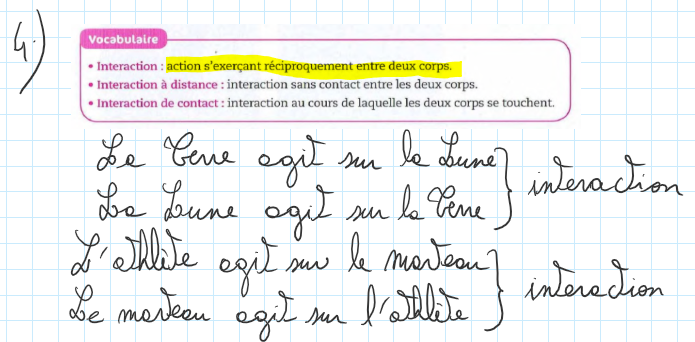 4.)
Vocabulaire
• Interaction : action s'exerçant réciproquement entre deux corps.
• Interaction à distance : interaction sans contact entre les deux corps.
• Interaction de contact : interaction au cours de laquelle les deux corps se touchent.
La Terre agit sur la Lune
La Lune agit sur la Terre
interaction
L'athlète agit sur le marteau
Le marteau agit sur l'athlète
interaction